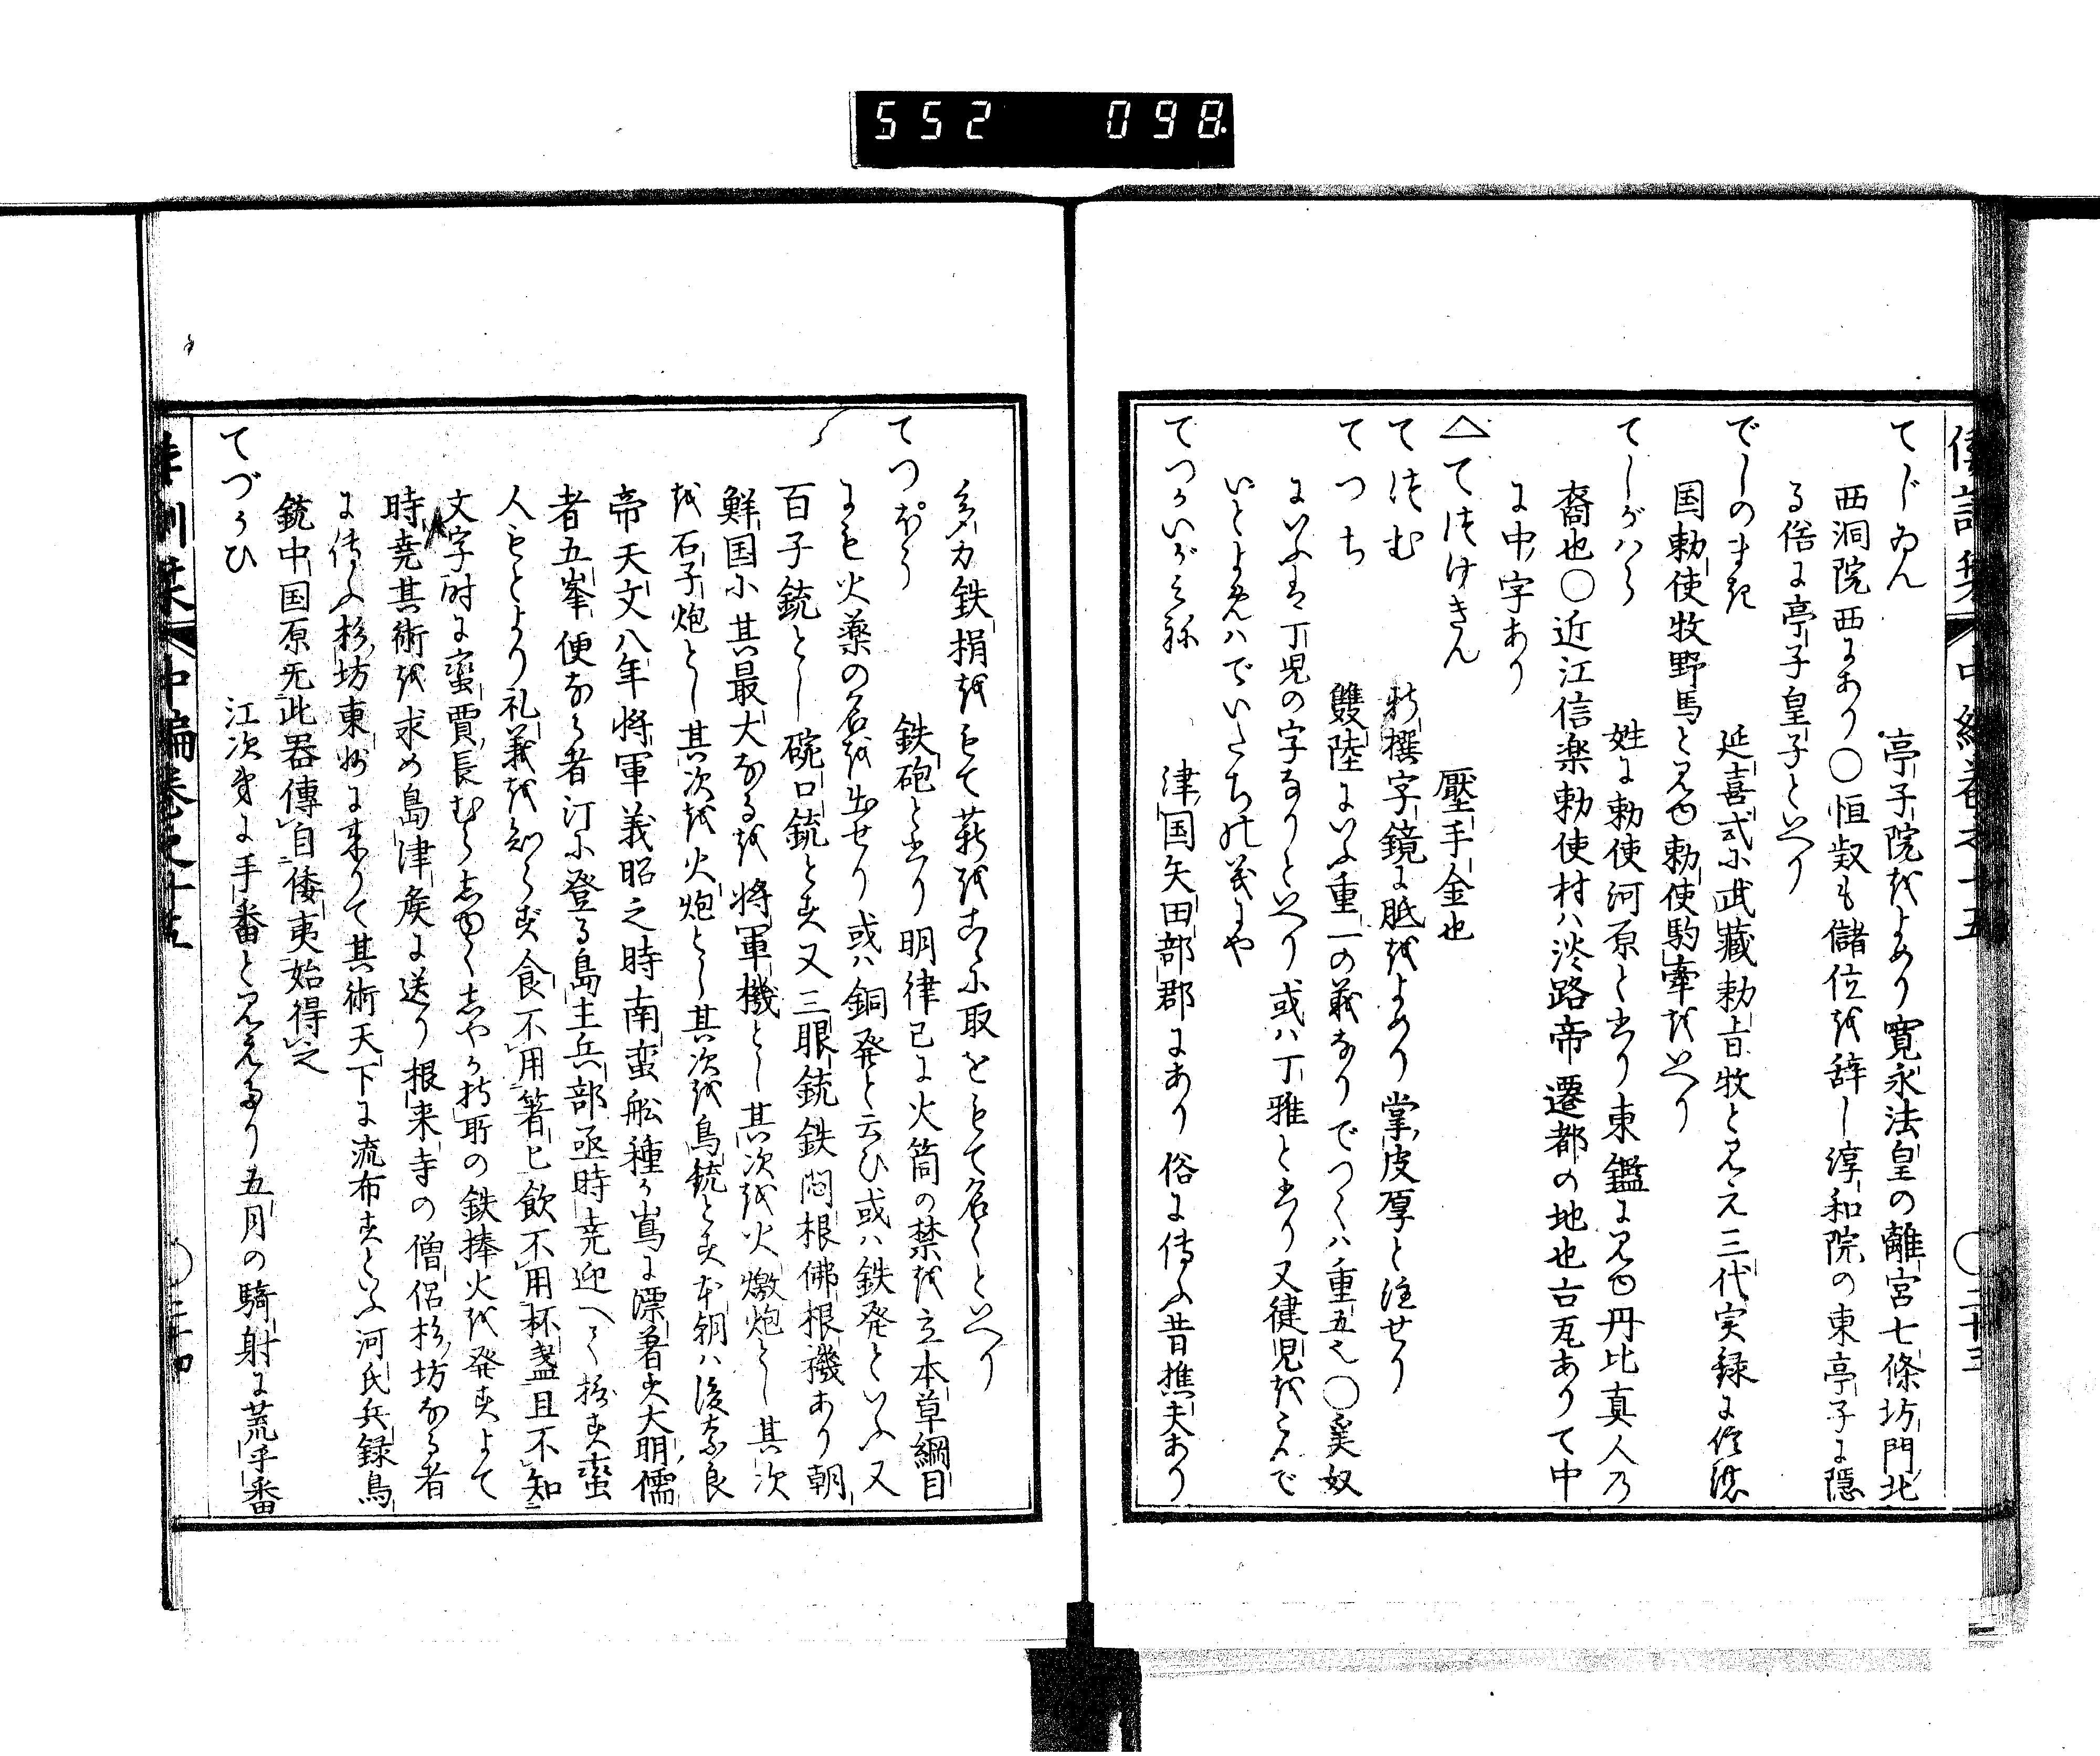 552 098
倭訓栞 中編巻之十五 ○二十三
てじゐん 亭子院をよめり寛永法皇の離宮七條坊門北
西洞院西にあり○恒敍も儲位を辞し淳和院の東亭子に隠
る俗に亭子皇子といへり
でしのまき 延喜式に武藏勅旨牧と見え三代実録に信濃
国勅使牧野馬と見ゆ勅使駒牽をいへり
てしがハら 姓に勅使河原と書り東鑑に見ゆ丹比真人乃
裔也○近江信楽勅使村ハ淡路帝遷都の地也古瓦ありて中
に中字あり
△てつけきん 壓手金也
てつむ 新撰字鏡に胝をよめり掌皮厚と注せり
てつち 雙陸にいふ重一の義なりでつくハ重五也○奚奴
にいふハ丁児の字なりといへり或ハ丁雅と書り又健児をこんで
いとよめれハでいたち乃義にや
てつかいがみね 津国矢田部郡にあり俗に傳ふ昔樵夫あり
多力鉄梢をもて薪をこゝに取をもて名くといへり
てつぽう 鉄砲と書り明律已に火筒の禁を立本草綱目
にも火薬の名を出せり或ハ銅発と云ひ或ハ鉄発といふ又
百子銃とし碗口銃とす又三眼銃鉄悶根佛根機あり朝
鮮国に其最大なるを将軍機とし其次を火燉炮とし其次
を石子炮とし其次を火炮とし其次を鳥銃とす本朝ハ後奈良
帝天文八年将軍義昭之時南蛮舩種か嶌に漂着す大明儒
者五峯便なる者汀に登る島主兵部丞時尭迎へて接す蛮
人もとより礼義を知らず食不用箸匕飲不用杯盞且不知
文字時に蛮賈長むらしゆくしやか持所の鉄捧火を発すよて
時尭其術を求め島津侯に送り根来寺の僧侶杉坊なる者
に傳ふ杉坊東州に来りて其術天下に流布すといふ河氏兵録鳥
銃中国原无此器傳自倭夷始得之
てづかひ 江次第に手番と見えたり五月の騎射に荒手番
倭訓栞 中編巻之十五 ○二十四